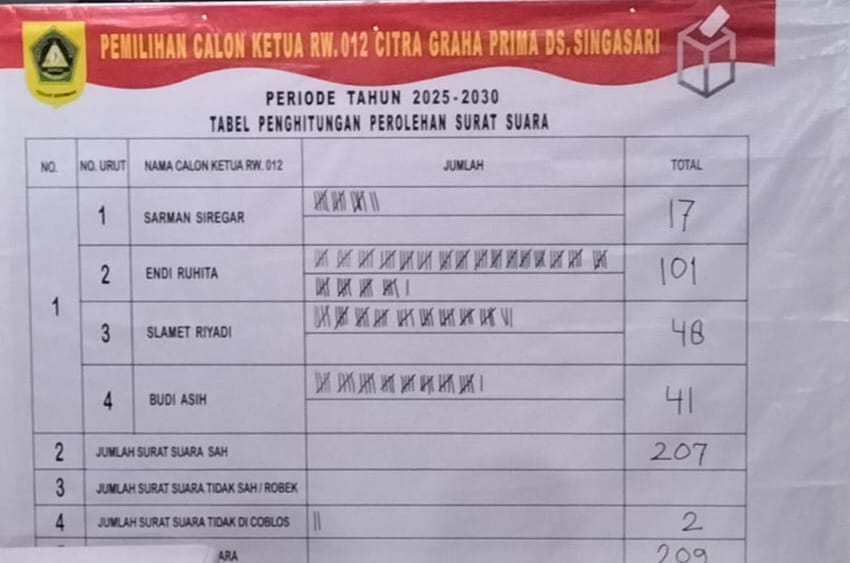 PEMILIHAN CALON KETUA RW.012 CITRA GRAHA PRIMA DS.SINGASARI
PERIODE TAHUN 2025-2030
TABEL PENGHITUNGAN PEROLEHAN SURAT SUARA
NO. NO. URUT NAMA CALON KETUA RW. 012 JUMLAH TOTAL
1
1 SARMAN SIREGAR 17
2 ENDI RUHITA 101
3 SLAMET RIYADI 48
4 BUDI ASIH 41
2 JUMLAH SURAT SUARA SAH 207
3 JUMLAH SURAT SUARA TIDAK SAH / ROBEK
4 JUMLAH SURAT SUARA TIDAK DI COBLOS 2
ARA 209